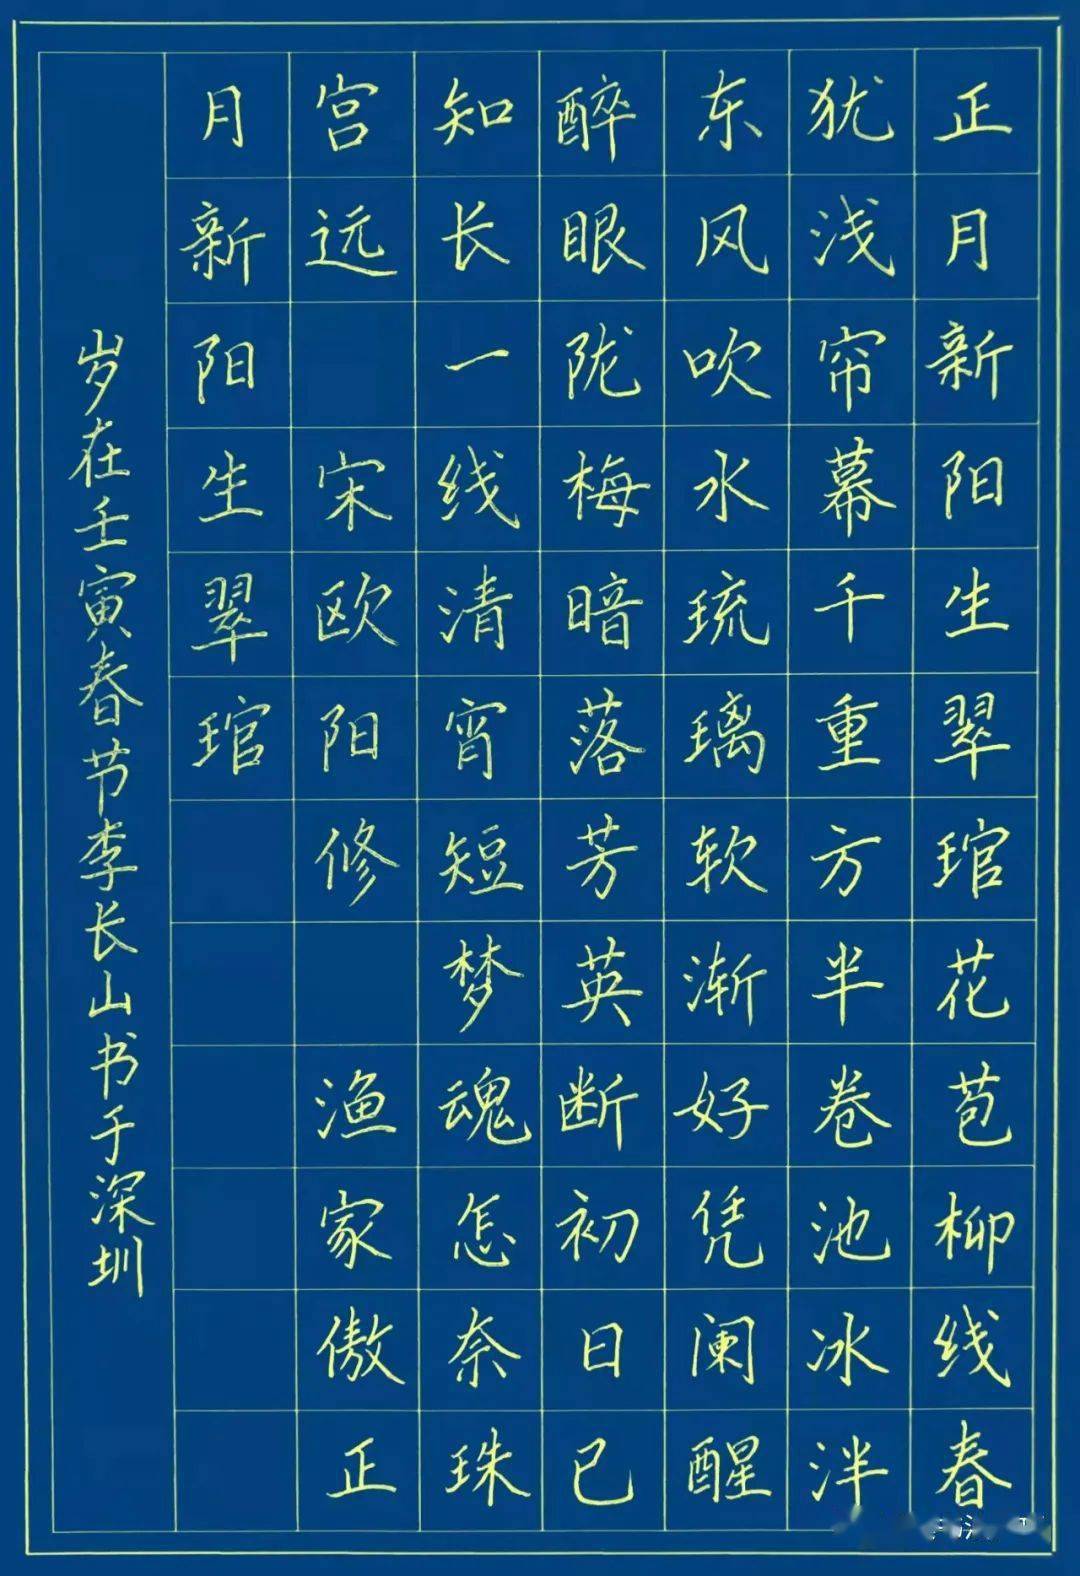 正月新阳生翠琯花苞柳线春
犹浅帘幕千重方半卷池冰泮
东风吹水琉璃软渐好凭阑醒
醉眼陇梅暗落芳英断初日已
知长一线清宵短梦魂怎奈珠
宫远 宋欧阳修 渔家傲正
月新阳生翠琯
岁在壬寅春节李长山书于深圳